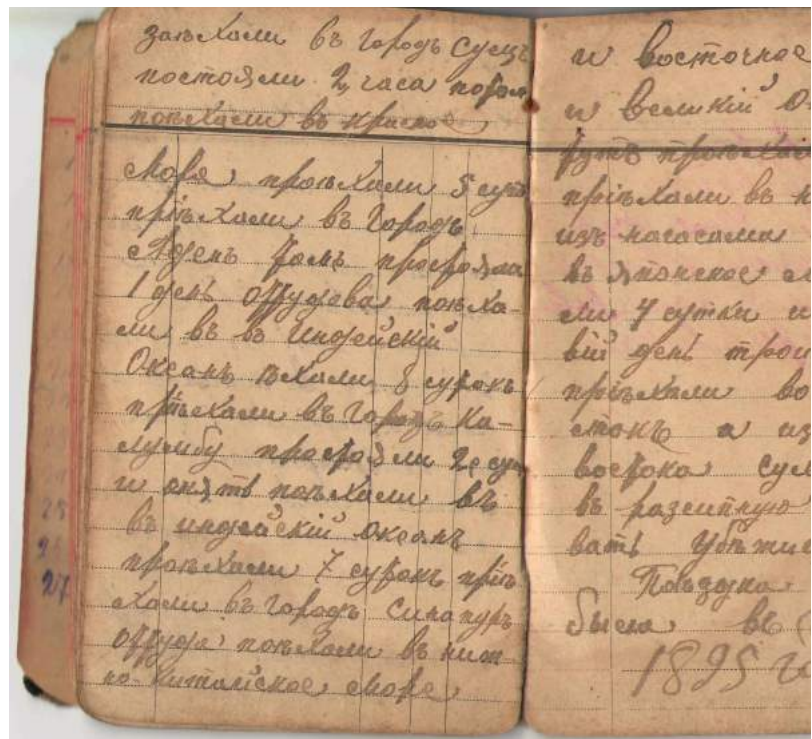 заѣхали въ городъ Суецъ
постояли 2 часа потом
поѣхали въ красное
море проѣхали 5 сут
пріѣхали въ городъ
Аденъ тамъ простояли
1 день оттудова поѣха-
ли въ въ индейскій
Океанъ ѣхали 8 сутокъ
пріѣхали въ городъ Ка-
лумбу простояли 2 сут
и опять поѣхали въ
въ индейскій океанъ
проѣхали 7 сутокъ пріѣ
хали въ городъ Синапуръ
оттуда поѣхали въ
но-китайское море
25
27
и восточное
и великій О
путь проѣхали
пріѣхали въ
изъ нагасаки
въ японское м
ли 7 сутки и
вій день
пріѣхали во
стокъ а из
востока
въ
вать
Поѣздка
была въ
1895 г